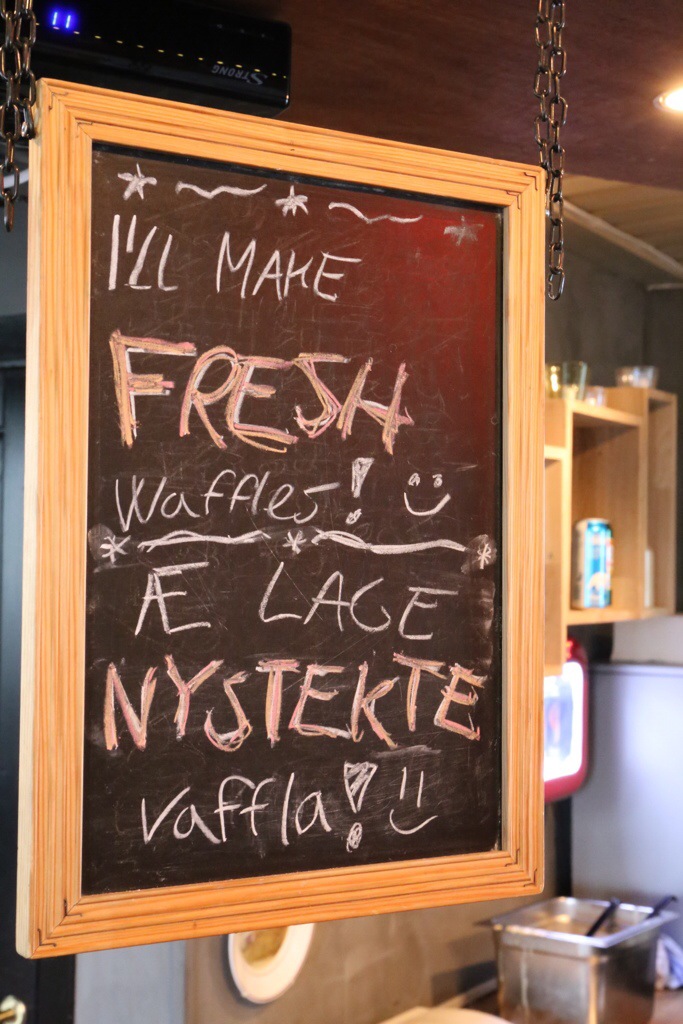 STRONG
I'LL MAKE
FRESH
Waffles! :)
Æ LAGE
NYSTEKTE
vaffla! :)